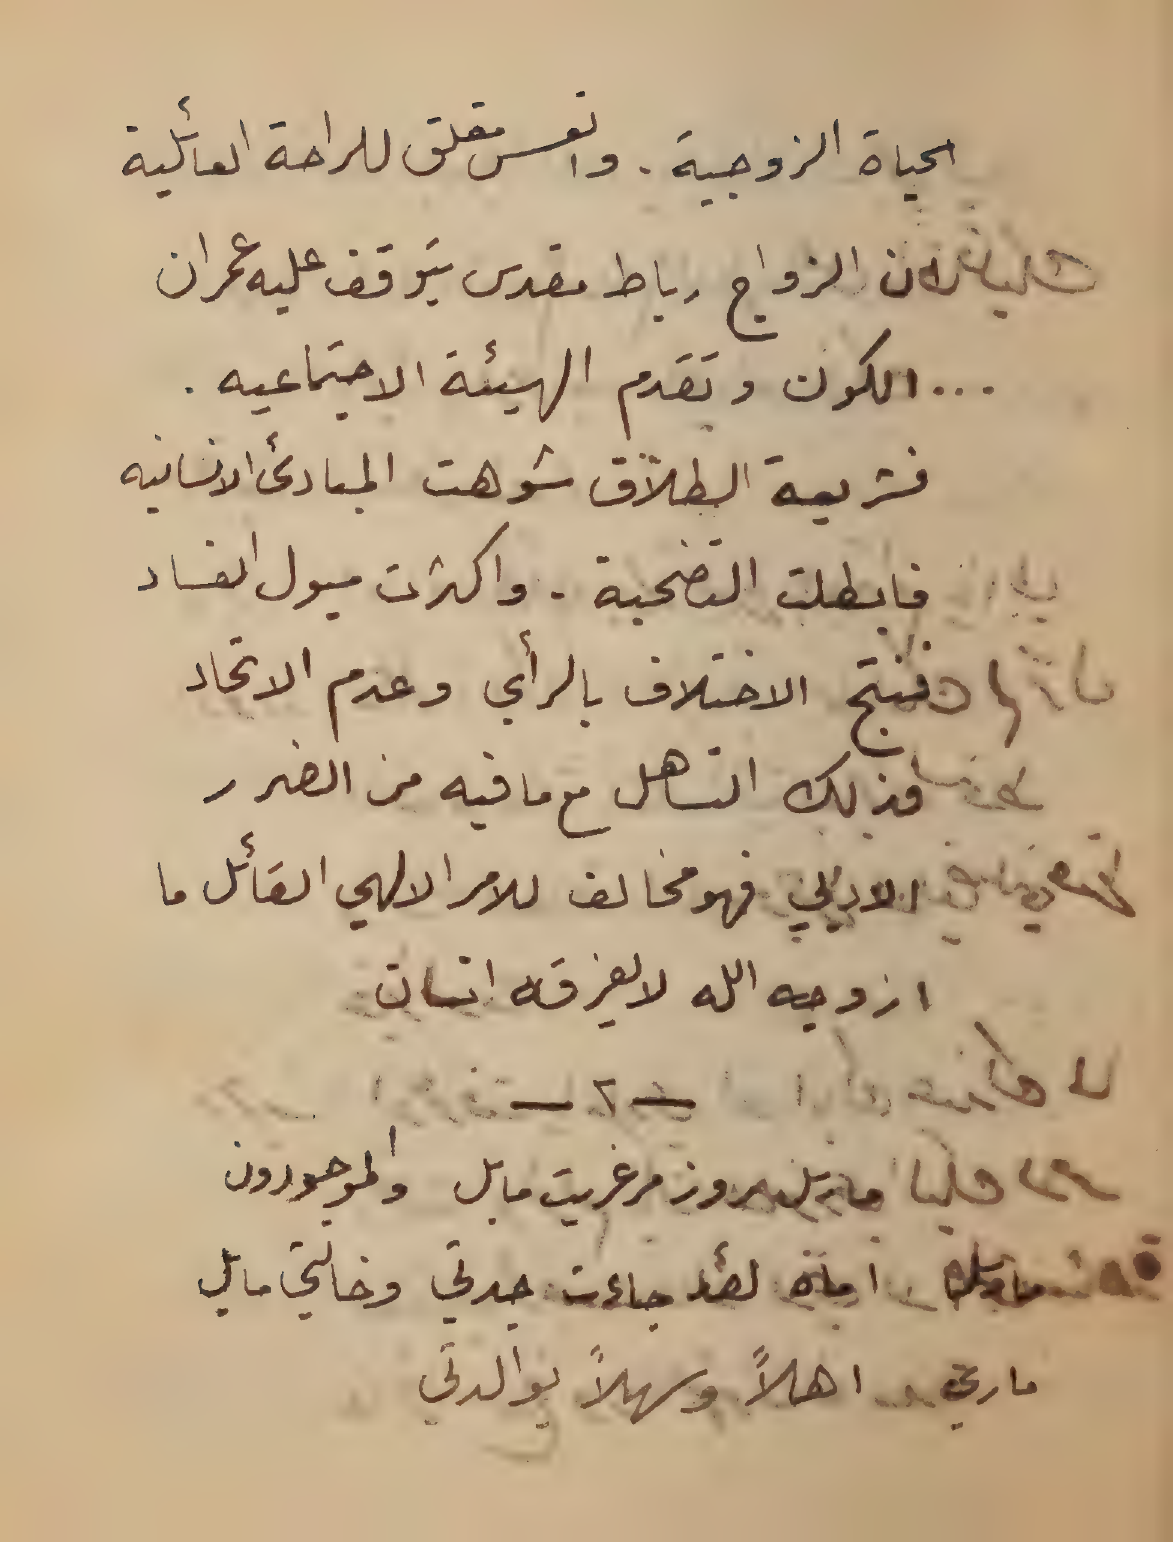 الحياة الزوجية . واتعس مقلق للراحة العائلية
لان الزواج رباط مقدس يتوقف عليه عمران
... الكون وتقدم الهيئة الاجتماعيه .
فشريعة الطلاق شوهت المبادئ الانسانيه
فابطلت التضحية . واكثرت ميول الفساد
فنتج الاختلاف بالرأي وعدم الاتحاد
فذلك التساهل مع ما فيه من الضرر
الادبي فهو مخالف للامر الالهي القائل ما
ازوجه الله لا يفرقه انسان
— ٢ —
مرغريت مابل والموجودون
اماه لقد جاءت جدتي وخالتي مابل
ماري اهلاً وسهلاً بوالدتي